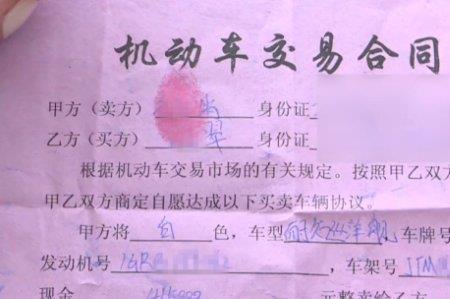 机动车交易合同
甲方（卖方） 身份证
乙方（买方） 翠 身份证
根据机动车交易市场的有关规定。按照甲乙双方
甲乙双方商定自愿达成以下买卖车辆协议。
甲方将 白 色，车型 车牌号
发动机号 1GR 2 ，车架号 JTM
现金 元整卖给乙方